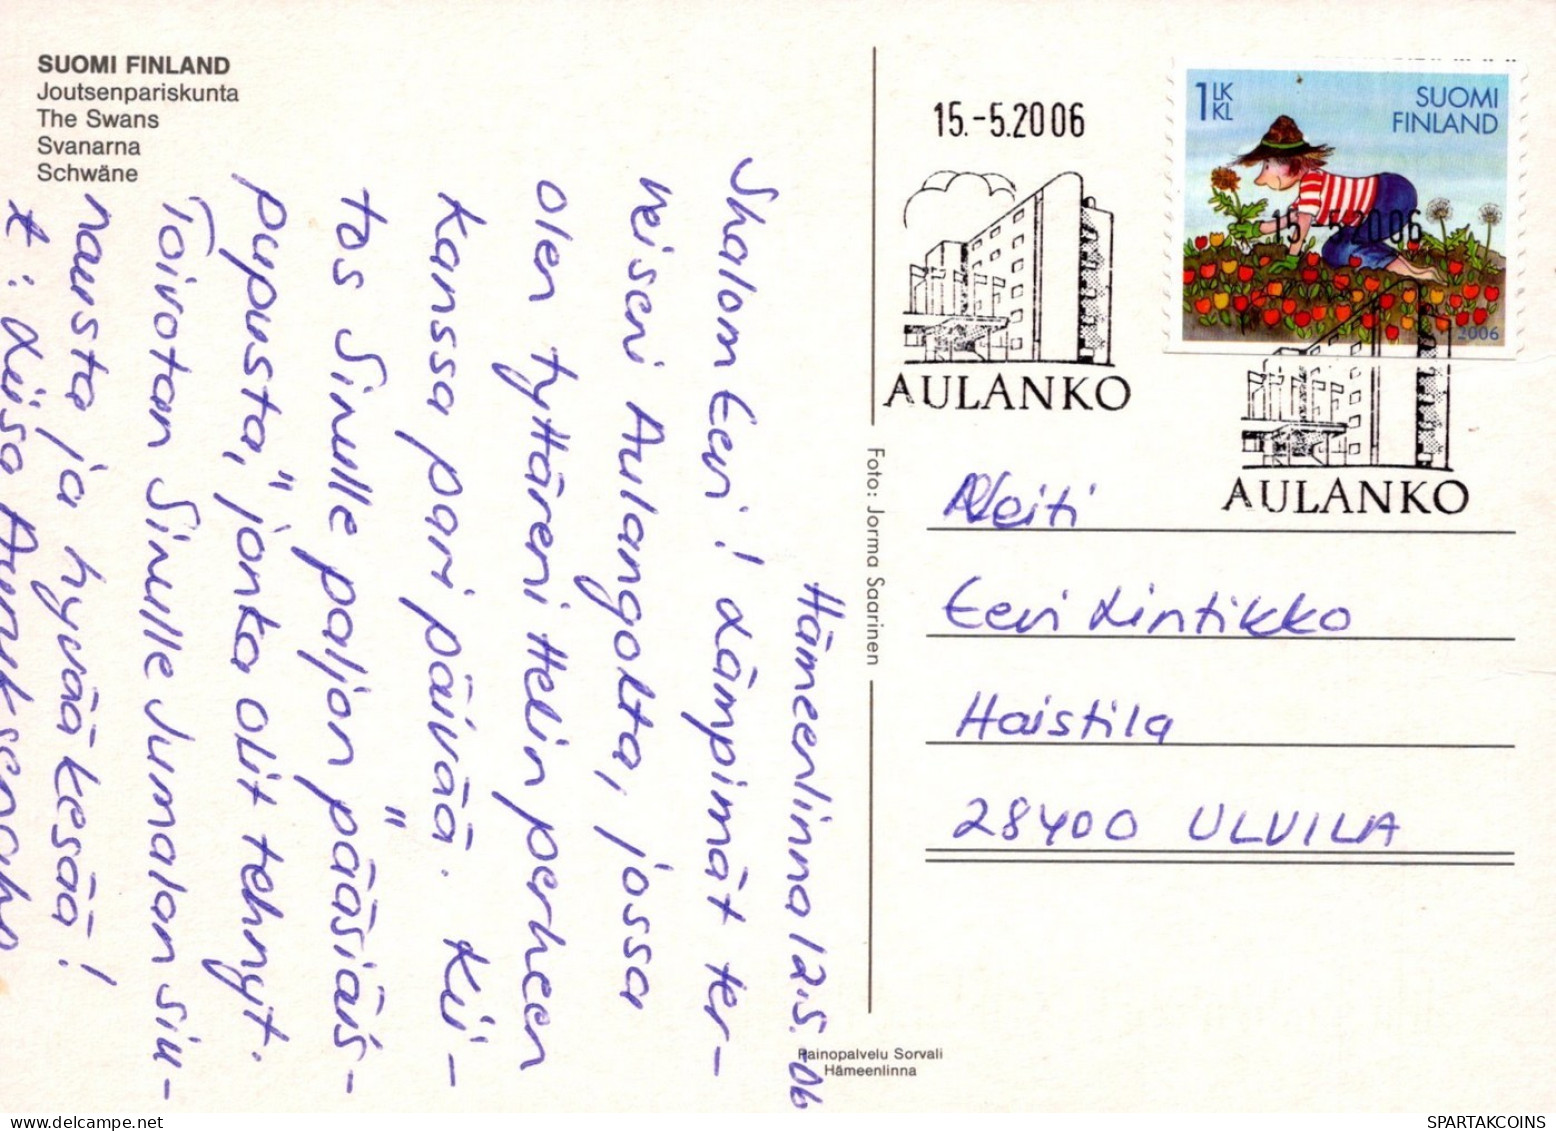 SUOMI FINLAND
Joutsenpariskunta
The Swans
Svanarna
Schwäne
Hämeenlinna 12.5.-06
Shalom Eevi! Lämpimät ter-
veiseni Aulangolta, jossa
olen tyttäreni Helin perheen
kanssa pari päivää. Kii-
tos Sinulle paljon "pääsiäis-
pupusta", jonka olit tehnyt.
Toivotan Sinulle Jumalan siu-
nausta ja hyvää kesää!
t: Liisa
Foto: Jorma Saarinen
Painopalvelu Sorvali
Hämeenlinna
15.-5.2006
AULANKO
1 LK
KL
SUOMI
FINLAND
15.-5.2006
2006
AULANKO
Neiti
Eevi Lintikko
Haistila
28400 ULVILA
SPARTAKCOINS